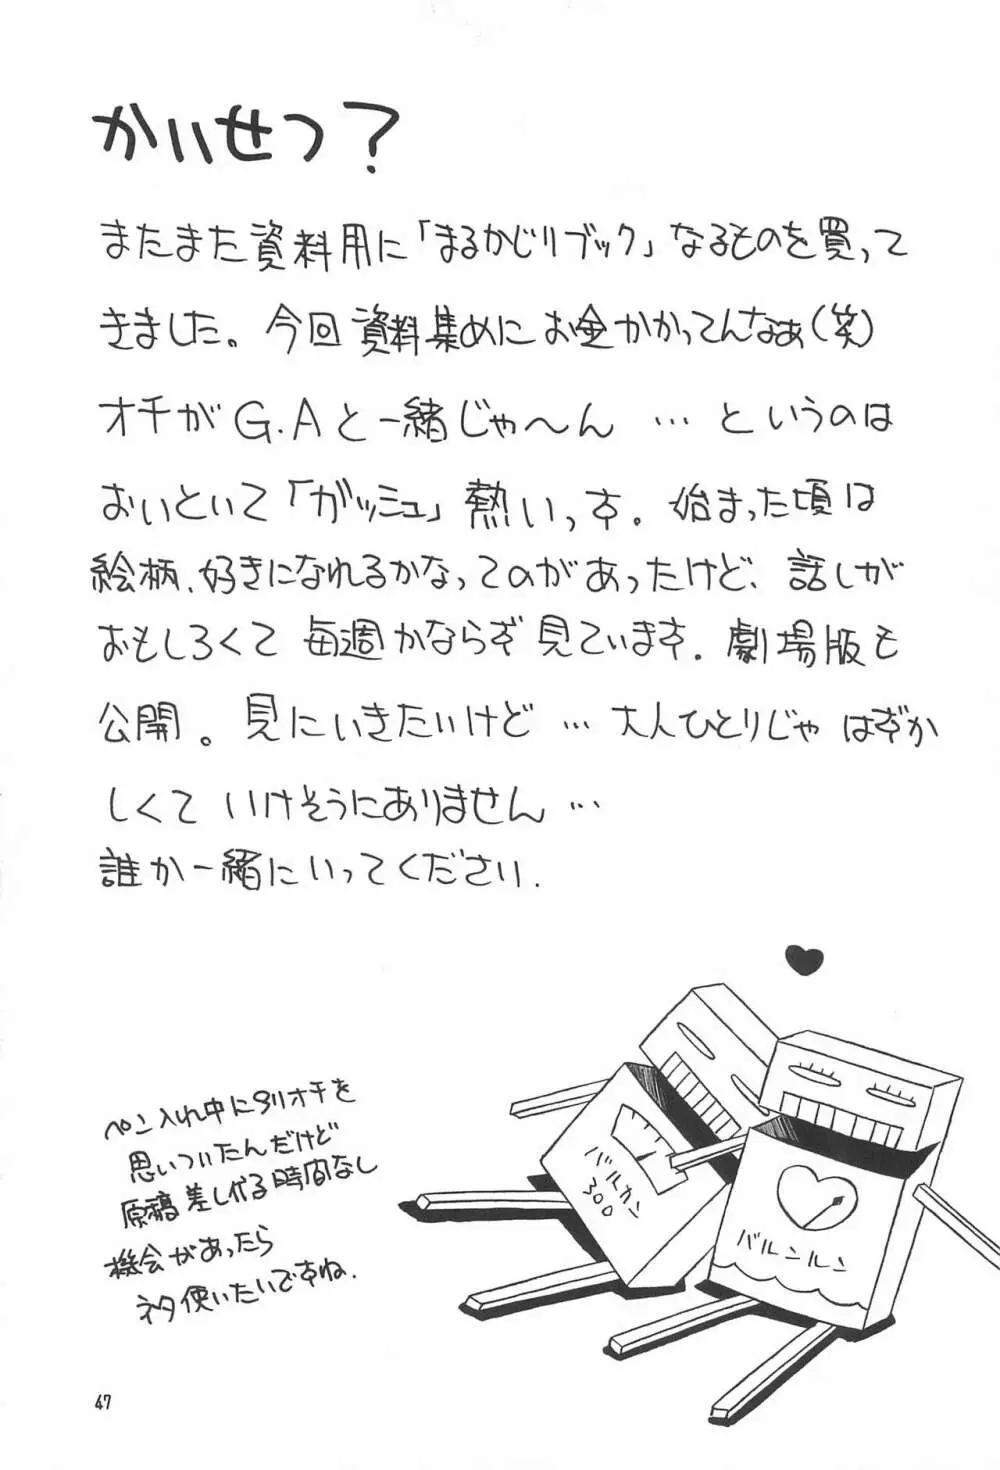 かいせつ？
またまた資料用に「まるかじりブック」なるものを買って
きました。今回資料集めにお金かかってんなぁ(笑)
オチがG.Aと一緒じゃ〜ん …というのは
おいといて「ガッシュ」熱いっす。始まった頃は
絵柄、好きになれるかなってのがあったけど、話しが
おもしろくて毎週かならず見ています。劇場版も
公開。見にいきたいけど…大人ひとりじゃはずか
しくていけそうにありません…
誰か一緒にいってください.
ペン入れ中に別オチを
思いついたんだけど
原稿差しかえる時間なし
機会があったら
ネタ使いたいですね.
バルカン
300
バルンルン
47